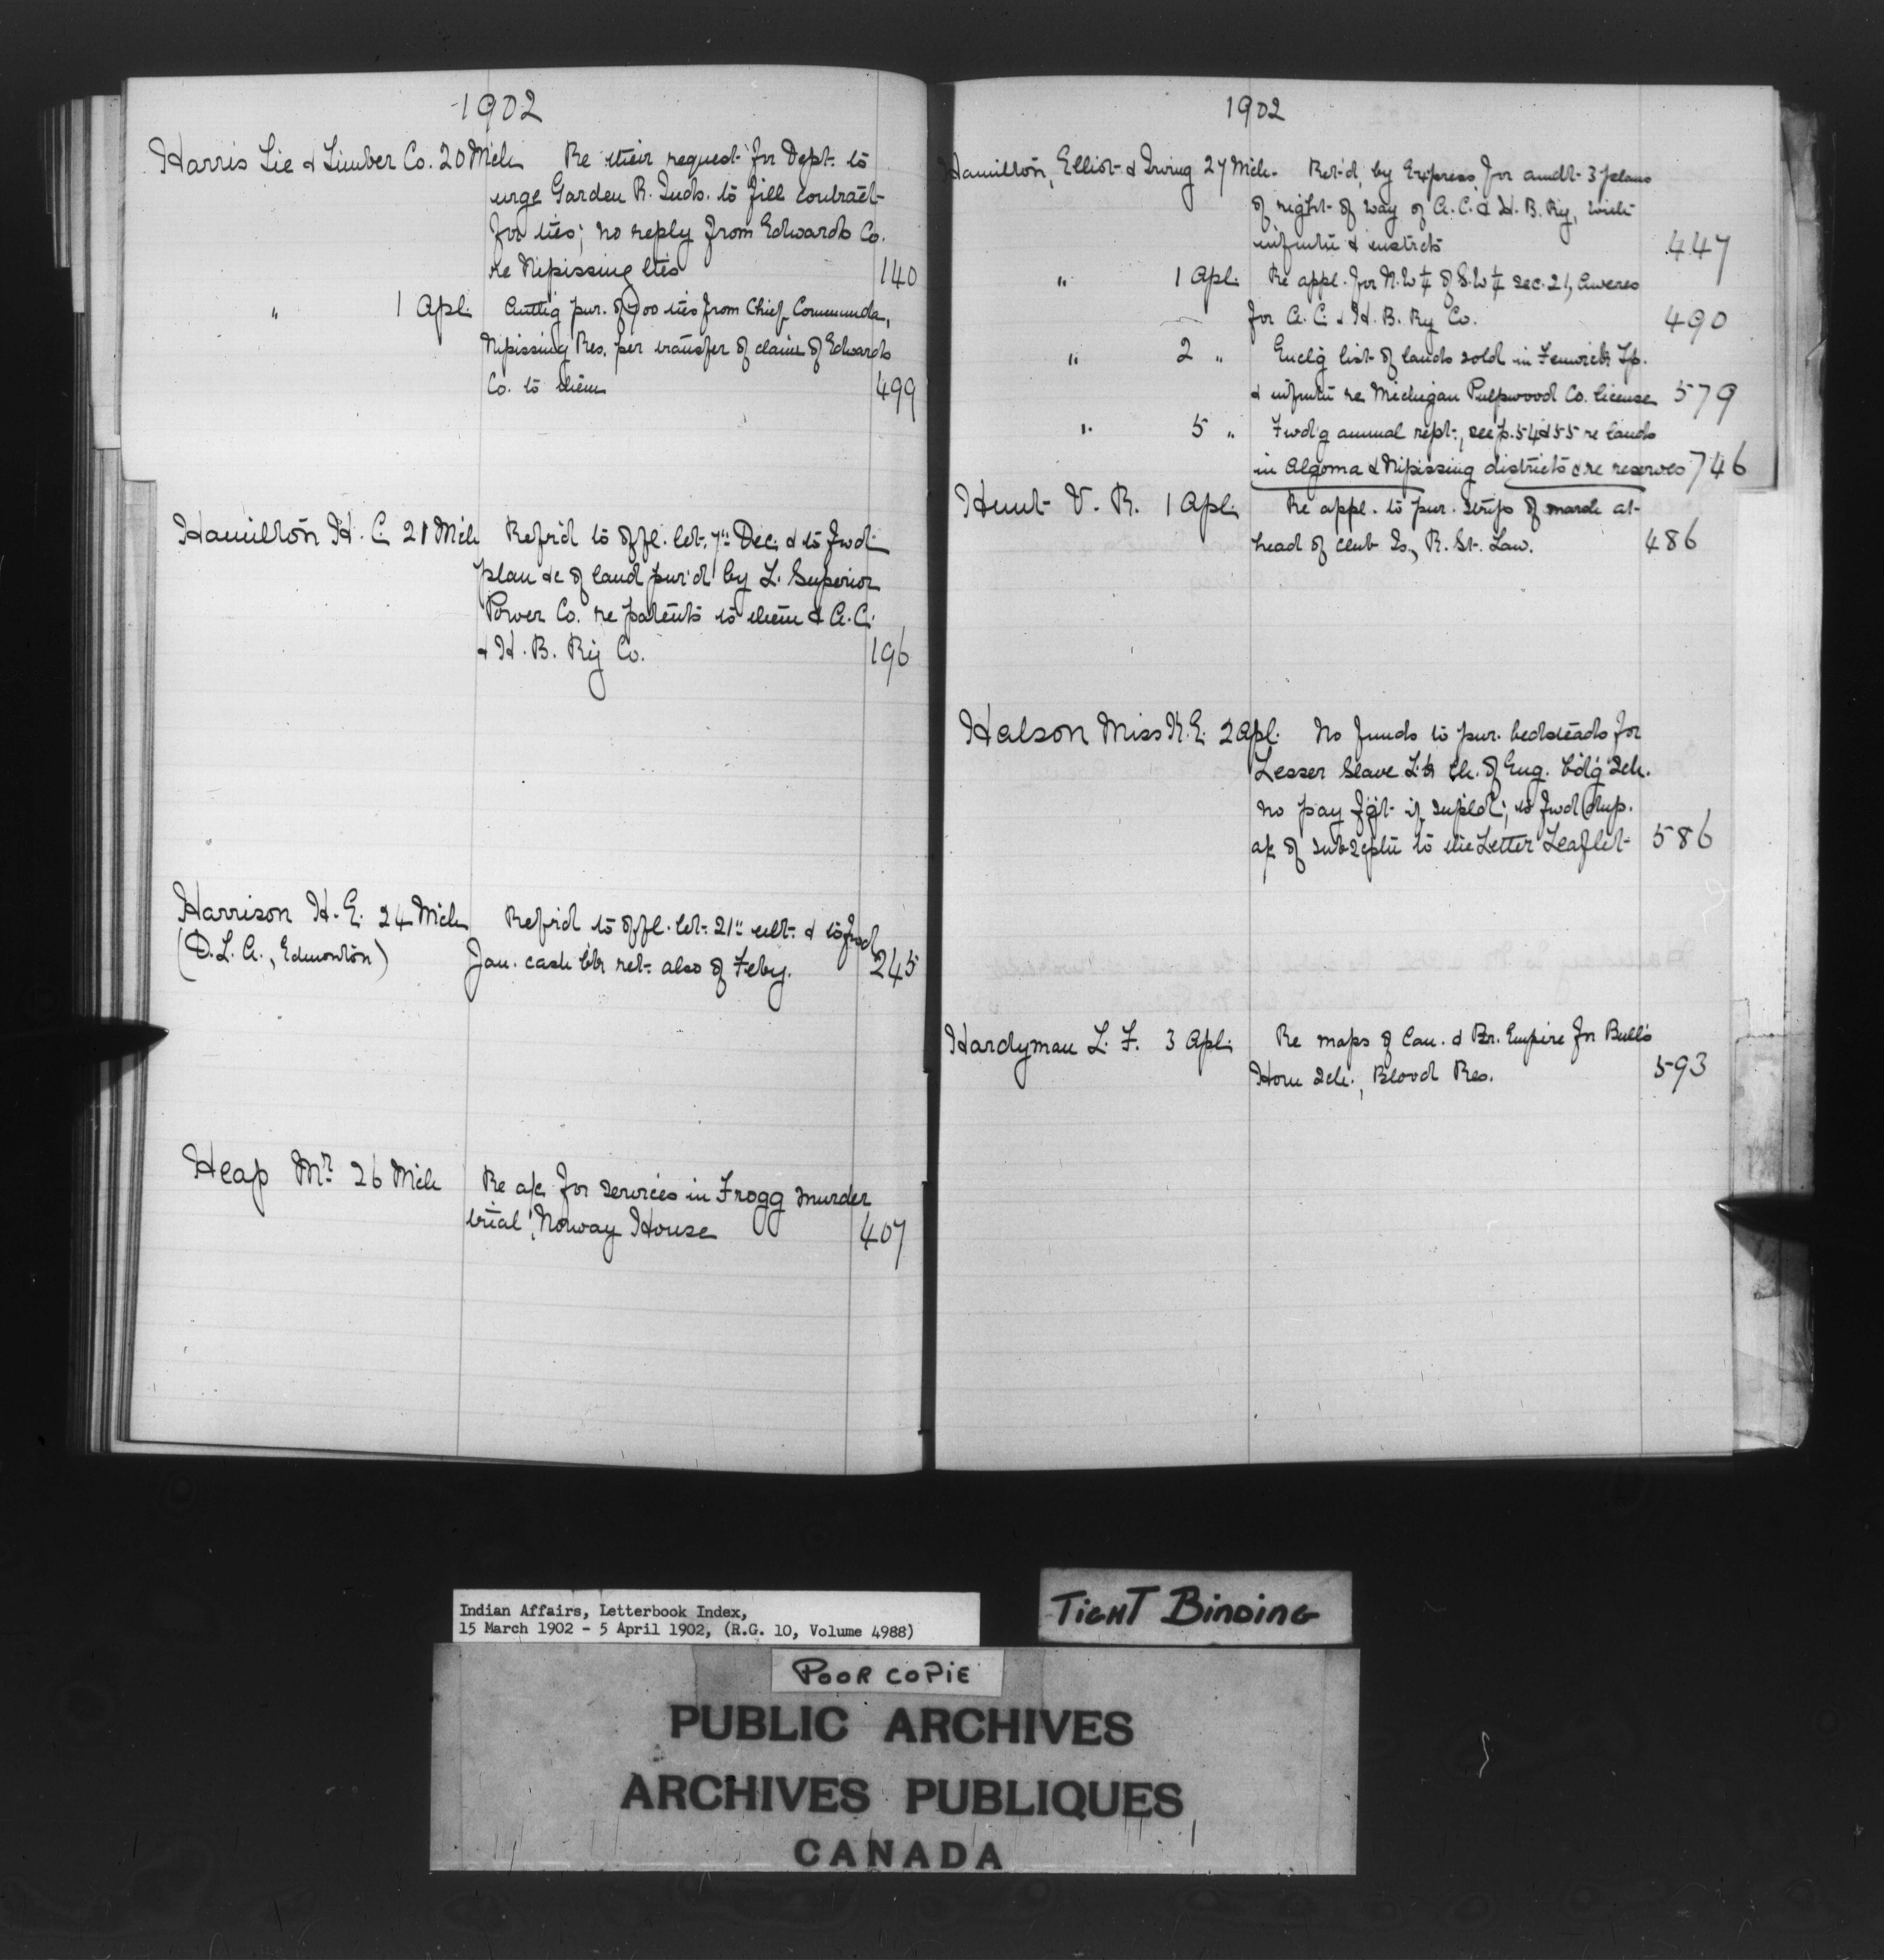 1902
Harris Tie & Timber Co. 20 Mch Re their request for Dept. to
urge Garden R. Inds. to fill contract
for ties; no reply from Edwards Co.
re Nipissing ties 140
" 1 Apl. Auth'g pur. of 700 ties from Chief Commanda,
Nipissing Res. per transfer of claim of Edwards
Co. to them 499
Hamilton H. C. 21 Mch Ref'd to offl. let. 7" Dec. & to fwd
plan &c of land pur'd by L. Superior
Power Co. re patents to them & A.C.
& H. B. Ry Co. 196
Harrison H. E. 24 Mch Ref'd to offl. let. 21" ult. & to fwd
(D.L.A., Edmonton) Jan. cash bk ret. also of Feby. 245
Heap Mr. 26 Mch Re a/c for services in Frogg murder
trial, Norway House 407
1902
Hamilton, Elliot & Irving 27 Mch. Ret'd, by Express, for amdt. 3 plans
of right of way of A.C. & H. B. Ry, with
infmtn & instrcts 447
" 1 Apl. Re appl. for N.W ¼ of S.W ¼ Sec. 21, Aweres
for A.C. & H. B. Ry Co. 490
" 2 " Encl'g list of lands sold in Fenwick Tp.
& infmtn re Michigan Pulpwood Co. license 579
" 5 " Fwd'g annual rept., see p. 54 & 55 re lands
in Algoma & Nipissing districts & re reserves 746
Hunt V. R. 1 Apl. Re appl. to pur. strips of marsh at
head of Club Is., R. St. Law. 486
Halson Miss K. E. 2 Apl. No funds to pur. bedsteads for
Lesser Slave Lk Ch. of Eng. b'd'g Sch.
no pay f'g't if suppl'd; to fwd dup.
a/c of subscptn to the Letter Leaflet 586
Hardyman L. F. 3 Apl. Re maps of Can. & Br. Empire for Bull's
Horn Sch., Blood Res. 593
Indian Affairs, Letterbook Index,
15 March 1902 - 5 April 1902, (R.G. 10, Volume 4988)
TIGHT BINDING
POOR COPIE
PUBLIC ARCHIVES
ARCHIVES PUBLIQUES
CANADA